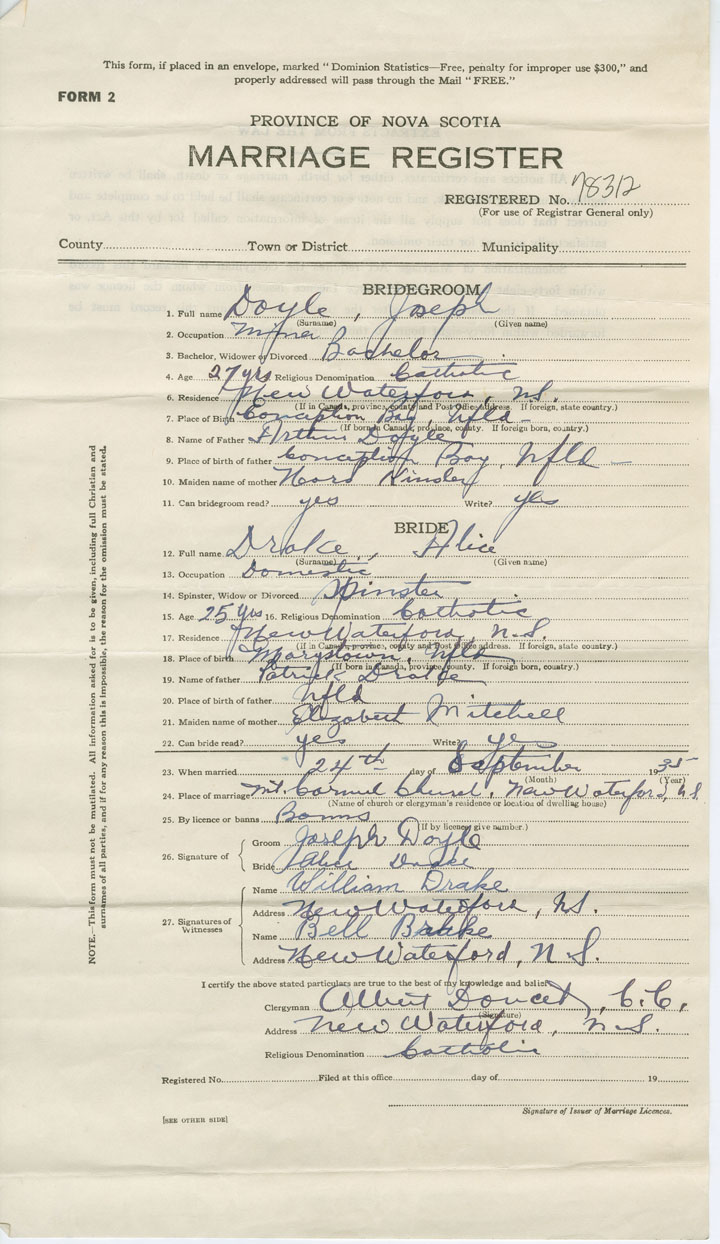 This form, if placed in an envelope, marked "Dominion Statistics—Free, penalty for improper use $300," and
properly addressed will pass through the Mail "FREE."
FORM 2
PROVINCE OF NOVA SCOTIA
MARRIAGE REGISTER
REGISTERED No. 78312
(For use of Registrar General only)
County Town or District Municipality
BRIDEGROOM
1. Full name Doyle, Joseph
(Surname) (Given name)
2. Occupation Miner
3. Bachelor, Widower or Divorced Bachelor
4. Age 27 yrs Religious Denomination Catholic
6. Residence New Waterford, N.S.
(If in Canada, province, county and Post Office address. If foreign, state country.)
7. Place of Birth Conception Bay, Nfld -
(If born in Canada, province, county. If foreign born, country.)
8. Name of Father Arthur Doyle
9. Place of birth of father Conception Bay, Nfld -
10. Maiden name of mother Nora
11. Can bridegroom read? yes Write? yes
BRIDE
12. Full name Drake, Alice
(Surname) (Given name)
13. Occupation Domestic
14. Spinster, Widow or Divorced Spinster
15. Age 25 yrs 16. Religious Denomination Catholic
17. Residence New Waterford, N.S.
(If in Canada, province, county and Post Office address. If foreign, state country.)
18. Place of birth Marystown, Nfld
(If born in Canada, province, county. If foreign born, country.)
19. Name of father Patrick Drake
20. Place of birth of father Nfld
21. Maiden name of mother Elizabert Mitchell
22. Can bride read? yes Write? yes
23. When married 24th day of September 1935
(Month) (Year)
24. Place of marriage Mt. Carmel Church, New Waterford, N.S.
(Name of church or clergyman's residence or location of dwelling house)
25. By licence or banns Banns
(If by licence, give number.)
26. Signature of
Groom Joseph Doyle
Bride Alice Drake
27. Signatures of Witnesses
Name William Drake
Address New Waterford, N.S.
Name Bell Drake
Address New Waterford, N.S.
I certify the above stated particulars are true to the best of my knowledge and belief.
Clergyman Albert Doucet, C.C.,
(Signature)
Address New Waterford, N.S.
Religious Denomination Catholic
Registered No. Filed at this office day of 19
Signature of Issuer of Marriage Licences.
[SEE OTHER SIDE]
NOTE.—This form must not be mutilated. All information asked for is to be given, including full Christian and
surnames of all parties, and if for any reason this is impossible, the reason for the omission must be stated.